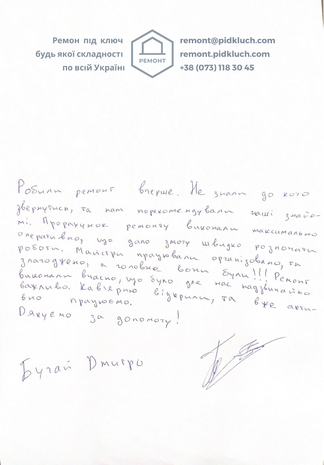 Ремон під ключ
будь якої складності
по всій Україні
РЕМОНТ
remont@pidkluch.com
remont.pidkluch.com
+38 (073) 118 30 45
Робили ремонт вперше. Не знали до кого
звернутись, та нам порекомендували наші знайо-
мі. Прорахунок ремонту виконали максимально
оперативно, що дало змогу швидко розпочати
роботи. Майстри працювали організовано, та
злагоджено, а головне вони були!!! Ремонт
виконали вчасно, що було для нас надзвичайно
важливо. Кав'ярню відкрили, та вже акти-
вно працюємо.
Дякуємо за допомогу!
Бугай Дмитро